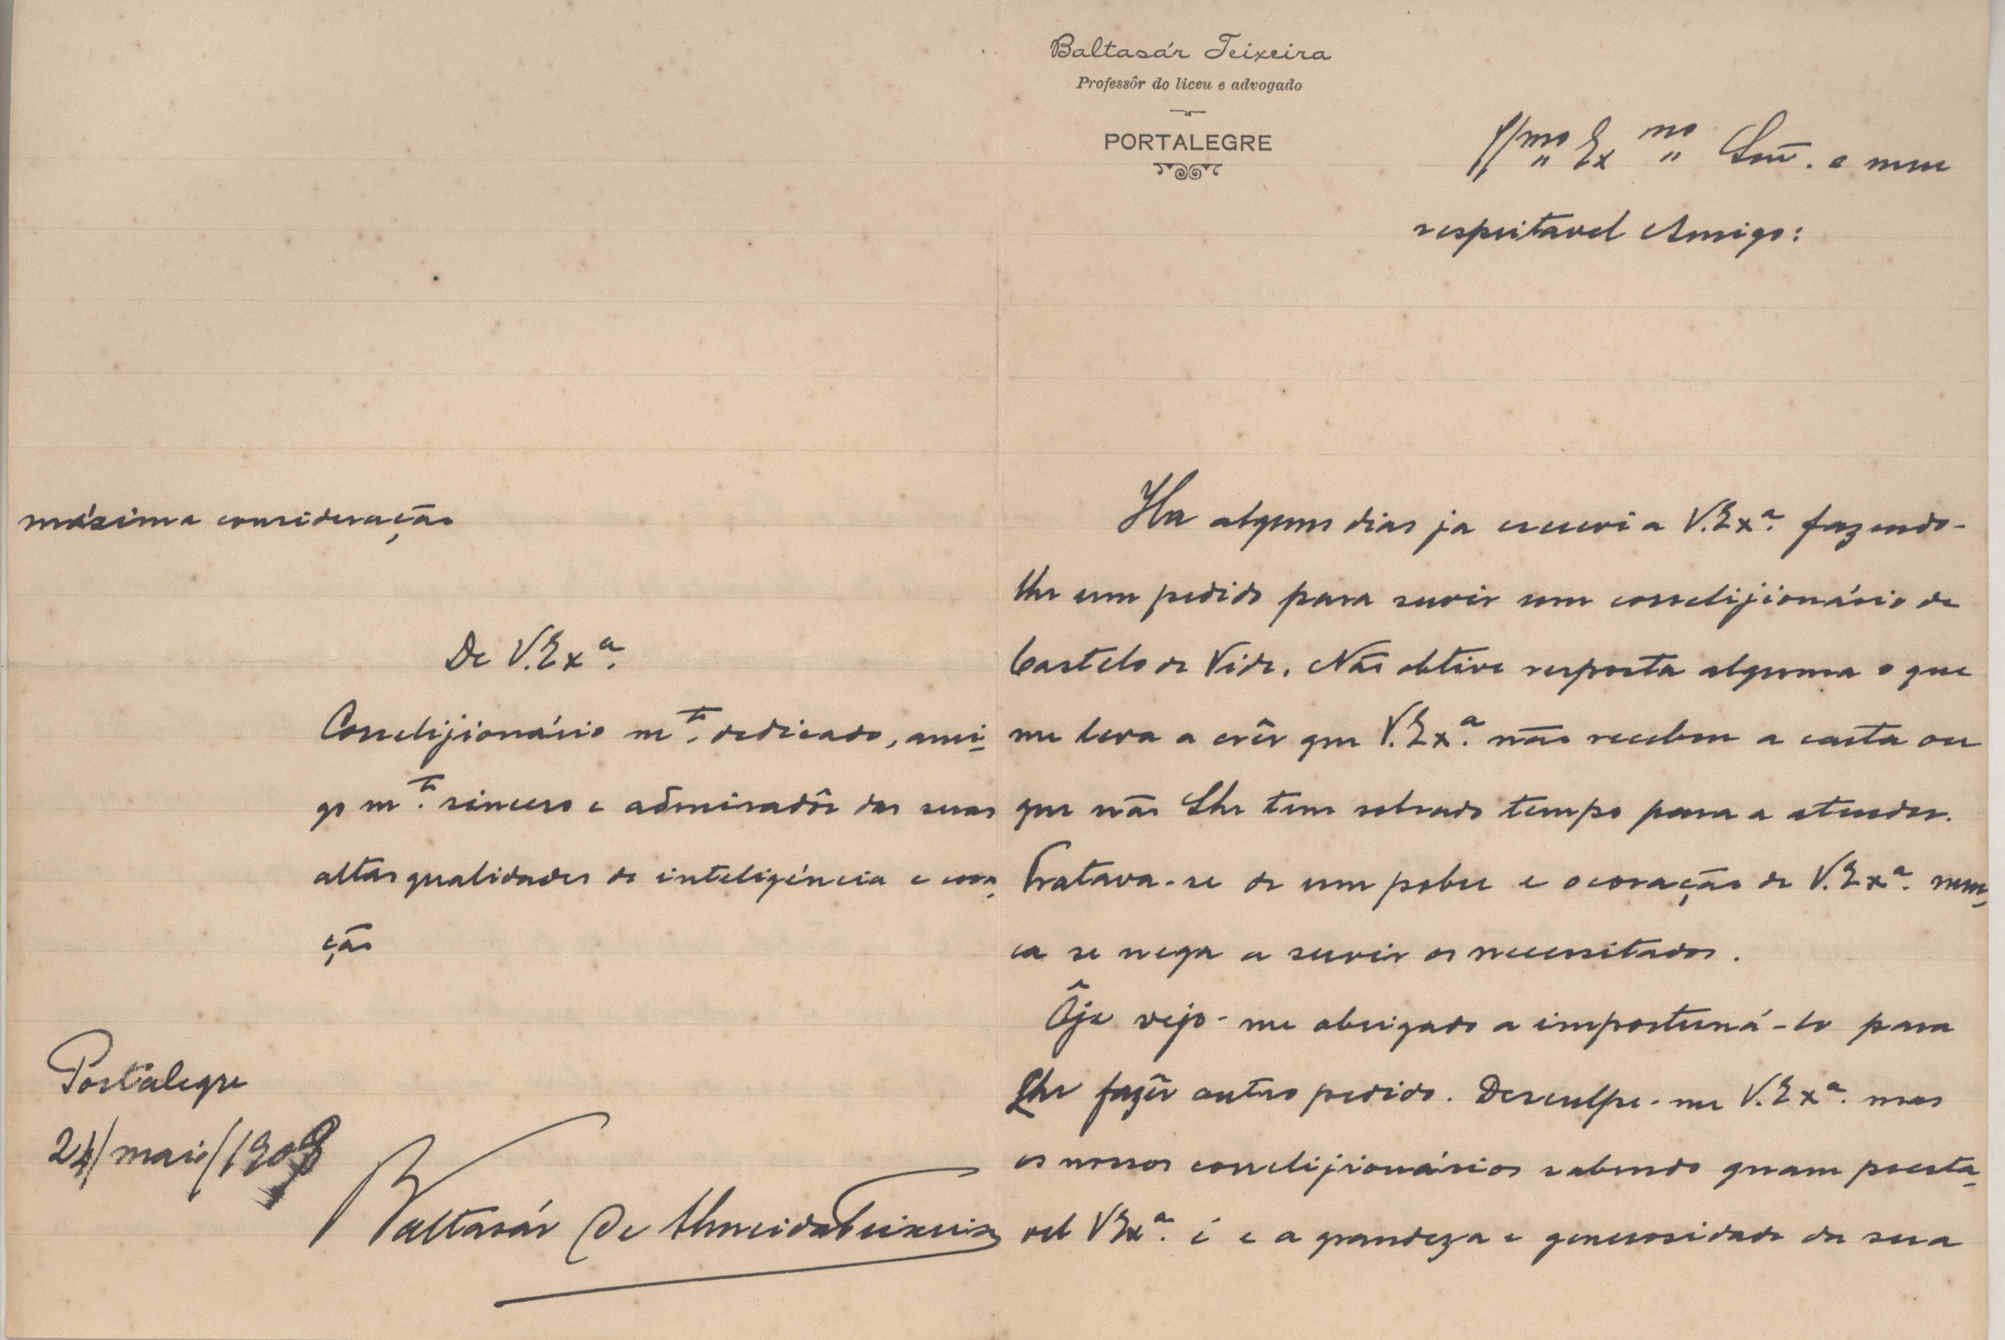 Baltasár Teixeira
Professôr do liceu e advogado
PORTALEGRE
Il.mo Ex.mo Snr. e meu
respeitavel Amigo:
Ha alguns dias ja escrevi a V. Exª. fazendo-
lhe um pedido para servir um correlijionário de
Castelo de Vide. Não obtive resposta alguma o que
me leva a crêr que V. Exª. não recebeu a carta ou
que não Lhe tem sobrado tempo para a atender.
Tratava-se de um pobre e o coração de V. Exª. nun-
ca se nega a servir os necessitados.
Ôje vejo-me obrigado a importuná-lo para
Lhe fazêr outro pedido. Desculpe-me V. Exª. mas
os nossos correlijionários sabendo quam presta-
vel V Exª. é e a grandeza e generosidade da sua
másima consideração
De V. Exª.
Correlijionário mto. dedicado, ami-
go mto. sincero e admiradôr das suas
altas qualidades de inteligência e cora-
ção
Portalegre
24/maio/1908
Baltasár de Almeida Teixeira